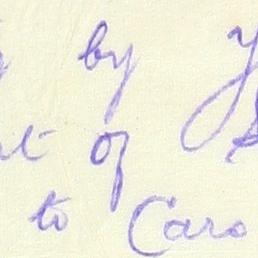 by
of
to Caro